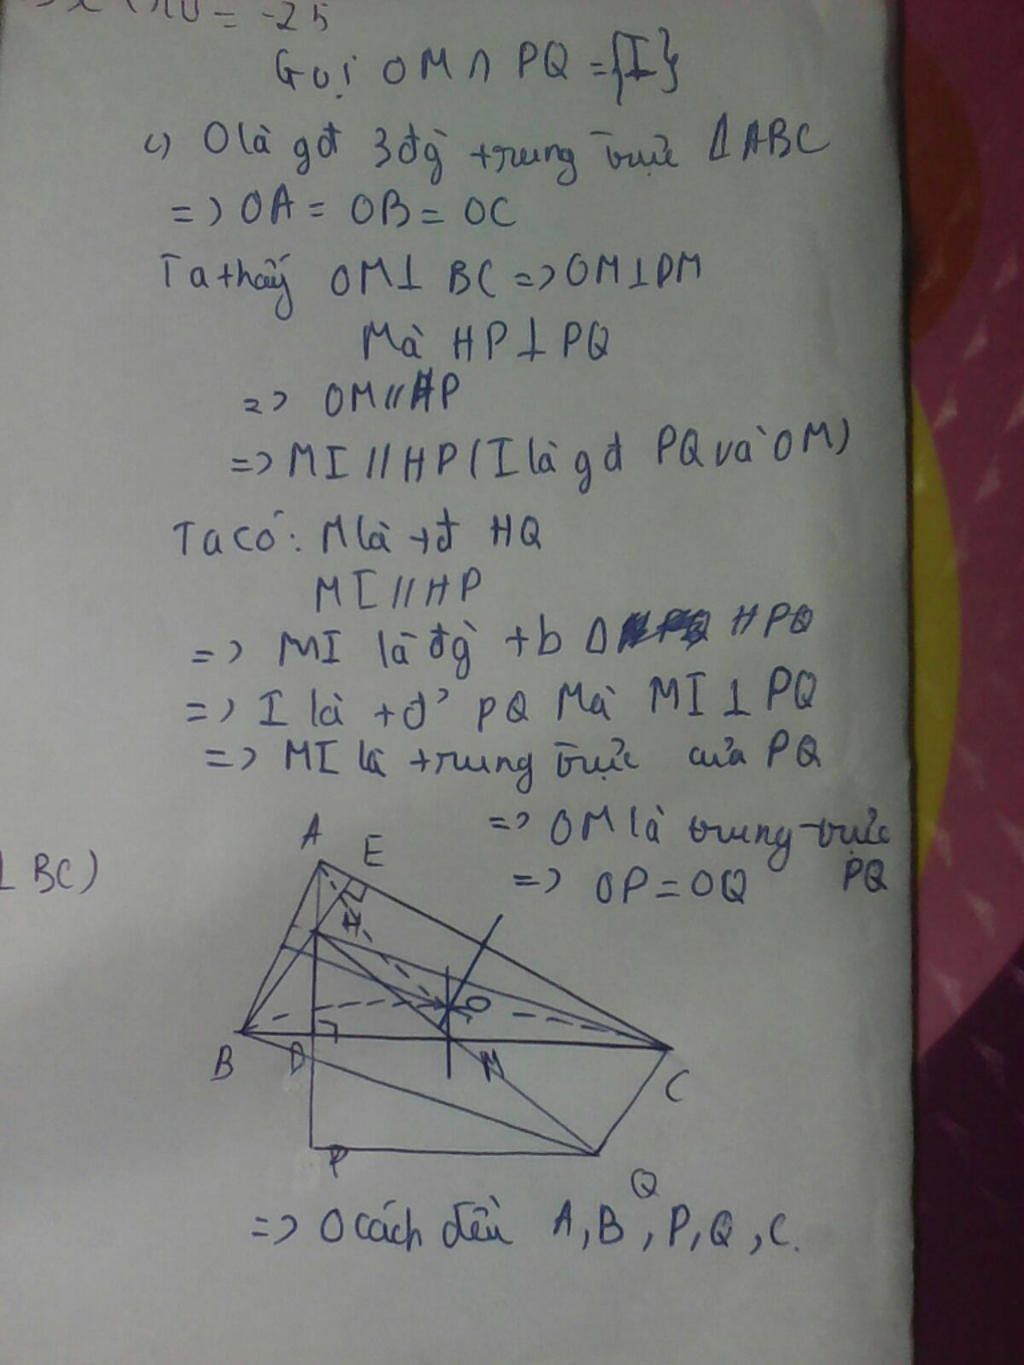 = -25
Gọi OM ∩ PQ = {I}
c) O là gđ 3 đg̀ trung trực ΔABC
=> OA = OB = OC
Ta thấy OM ⊥ BC => OM ⊥ DM
Mà HP ⊥ PQ
=> OM // HP
=> MI // HP (I là gđ PQ và OM)
Ta có: M là tđ HQ
MI // HP
=> MI là đg̀ tb Δ HPQ
=> I là tđ PQ Mà MI ⊥ PQ
=> MI là trung trực của PQ
=> OM là trung trực PQ
=> OP = OQ
⊥ BC)
A E
H
O
B D M C
P Q
=> O cách đều A, B, P, Q, C.